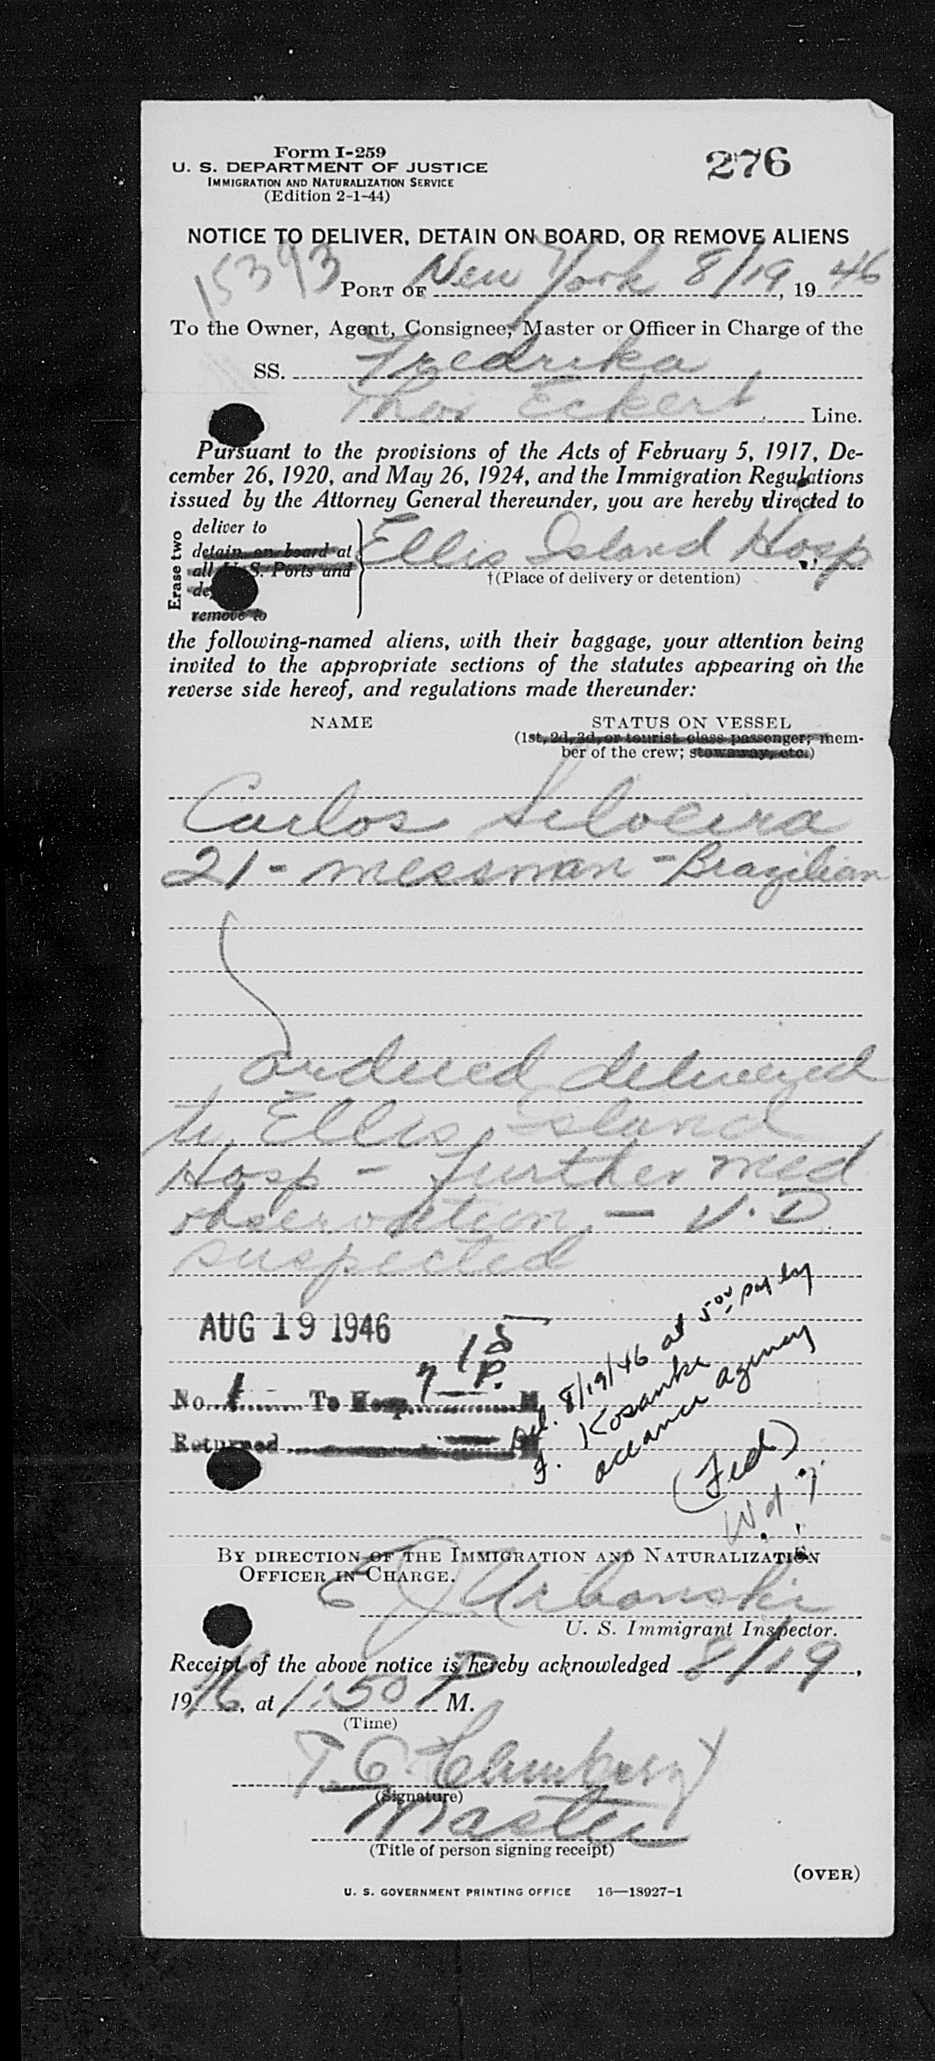 Form I-259
U. S. DEPARTMENT OF JUSTICE
IMMIGRATION AND NATURALIZATION SERVICE
(Edition 2-1-44)
276
NOTICE TO DELIVER, DETAIN ON BOARD, OR REMOVE ALIENS
15393
PORT OF New York 8/19, 19 46
To the Owner, Agent, Consignee, Master or Officer in Charge of the
SS. Fredrika
Thor Eckert Line.
Pursuant to the provisions of the Acts of February 5, 1917, De-
cember 26, 1920, and May 26, 1924, and the Immigration Regulations
issued by the Attorney General thereunder, you are hereby directed to
Erase two
deliver to
detain on board at
all U. S. Ports and
remove to
Ellis Island Hosp
†(Place of delivery or detention)
the following-named aliens, with their baggage, your attention being
invited to the appropriate sections of the statutes appearing on the
reverse side hereof, and regulations made thereunder:
NAME STATUS ON VESSEL
(1st, 2d, 3d, or tourist class passenger; mem-
ber of the crew; stowaway, etc.)
Carlos Silveira
21 - messman - Brazilian
ordered delivered
to Ellis Island
Hosp - further med
observation - V.D
suspected
AUG 19 1946
No. 1 To Hosp. 7 15 P. M
Returned M
Del. 8/19/46 at 5 00 pm by
F. Kosanke
agency
(Fed)
BY DIRECTION OF THE IMMIGRATION AND NATURALIZATION
OFFICER IN CHARGE.
E J Urbanski
U. S. Immigrant Inspector.
Receipt of the above notice is hereby acknowledged 8/19,
1946, at 1:50 P M.
(Time)
(Signature)
Master
(Title of person signing receipt)
(OVER)
U. S. GOVERNMENT PRINTING OFFICE 16—18927-1